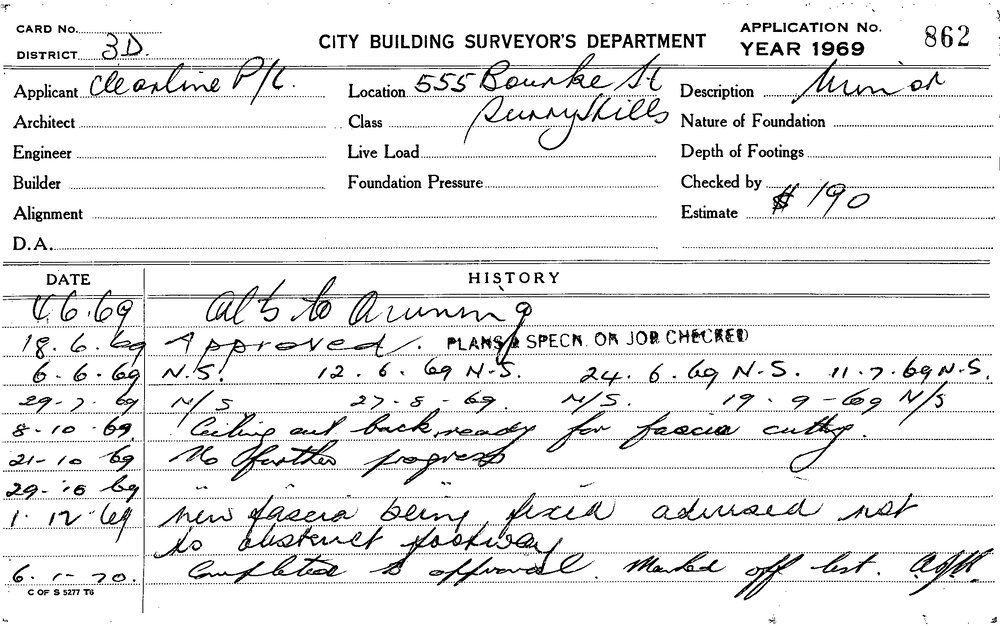 CARD No.
DISTRICT 3D.
CITY BUILDING SURVEYOR'S DEPARTMENT
APPLICATION No. 862
YEAR 1969
Applicant Clearline P/L. Location 555 Bourke St Description Minor
Architect Class Surry Hills Nature of Foundation
Engineer Live Load Depth of Footings
Builder Foundation Pressure Checked by
Alignment Estimate $190
D.A.
DATE HISTORY
4.6.69 Alts to Awning
18.6.69 Approved. PLANS & SPECN. ON JOB CHECKED
6.6.69 N.S. 12.6.69 N.S. 24.6.69 N.S. 11.7.69 N.S.
29-7.69 N/S 27-8-69. N/S. 19-9-69 N/S
8-10-69 Ceiling out back, ready for fascia cutting.
21-10 69 No further progress
29-10 69 " " "
1.12.69 New fascia being fixed advised not
to obstruct footway
6.1-70. Completed to approval. Marked off list.
C OF S 5277 T6